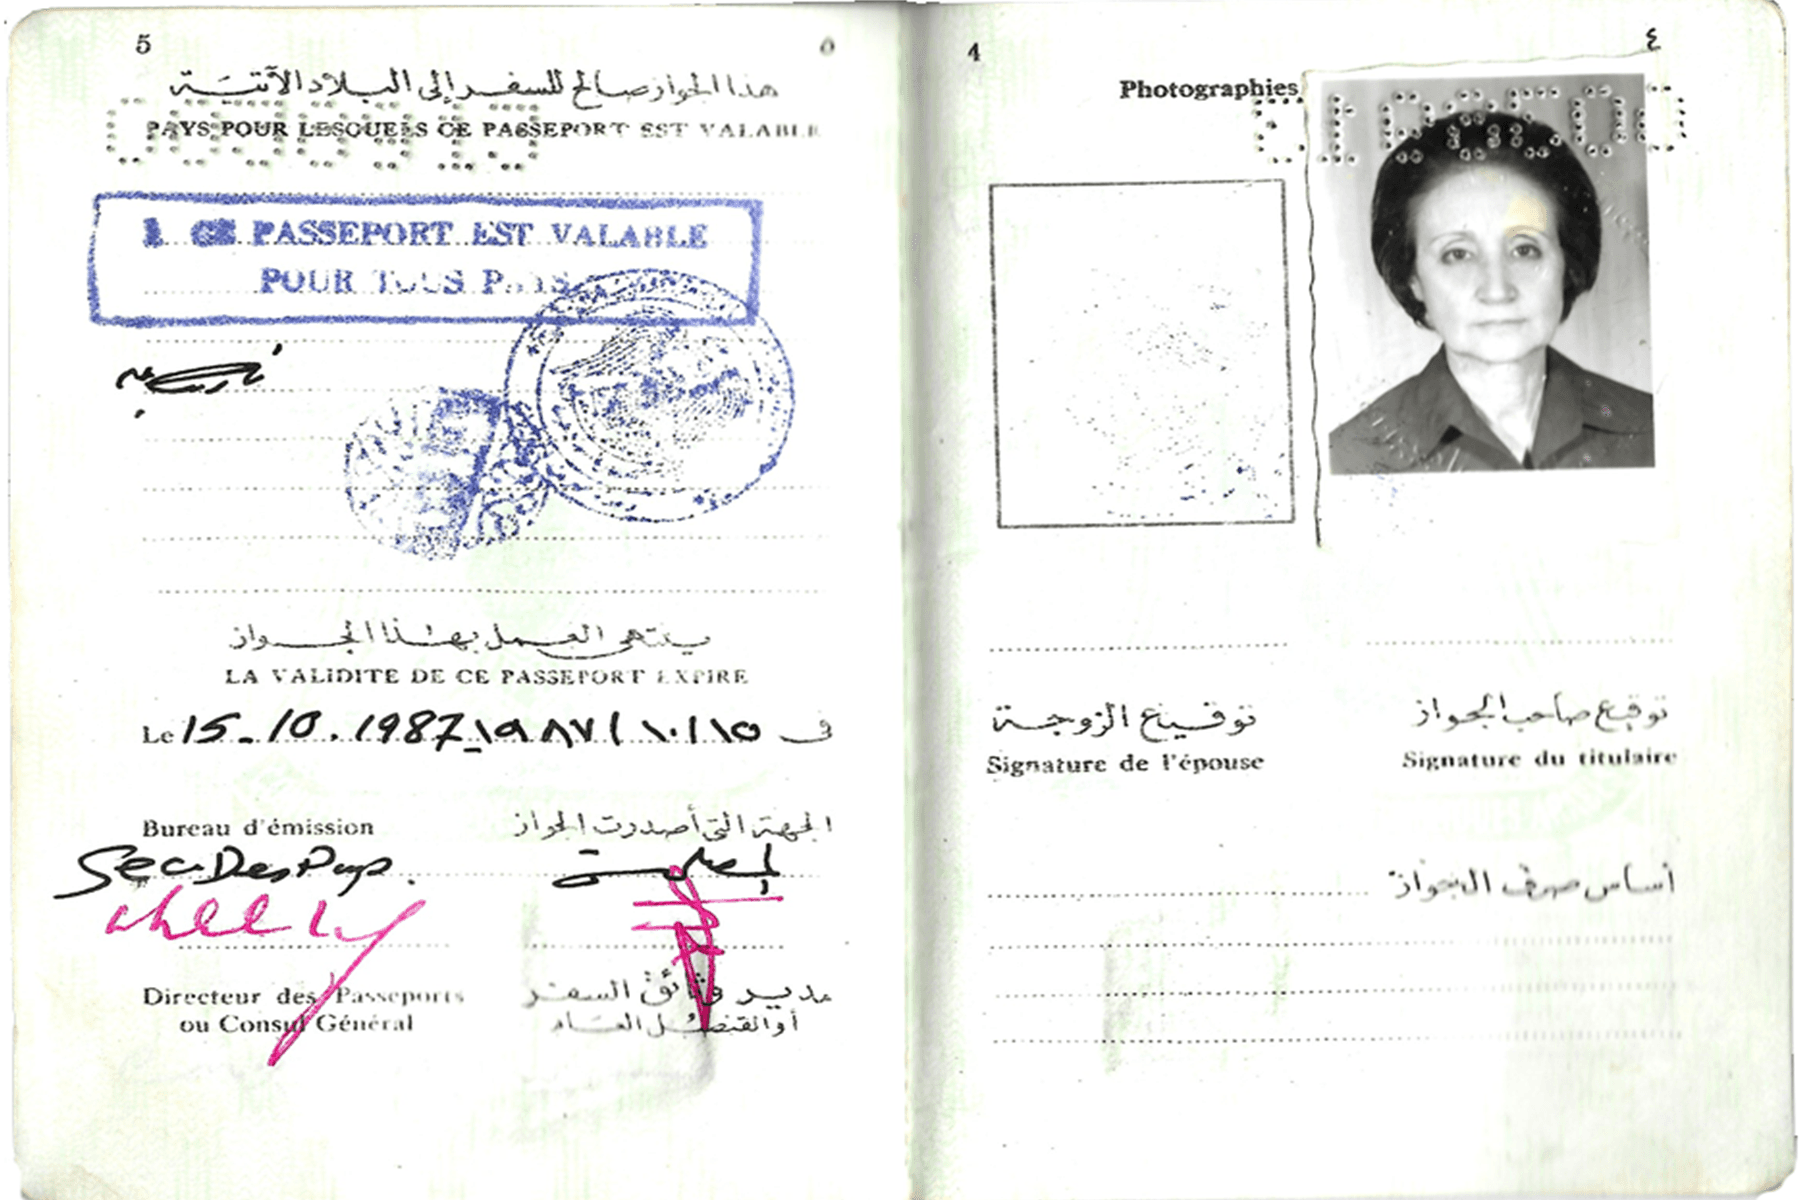 5
٥
هذا الجواز صالح للسفر إلى البلاد الآتية
PAYS POUR LESQUELS CE PASSEPORT EST VALABLE
CE PASSEPORT EST VALABLE
POUR TOUS PAYS
ينتهي العمل بهذا الجواز
LA VALIDITE DE CE PASSEPORT EXPIRE
Le 15-10.1987 ١٩٨٧/١٠/١٥ في
Bureau d'émission
الجهة التي أصدرت الجواز
Directeur des Passeports
ou Consul Général
مدير وثائق السفر
أو القنصل العام
4
٤
Photographies
توقيع الزوجة
Signature de l'épouse
توقيع صاحب الجواز
Signature du titulaire
أساس صرف الجواز